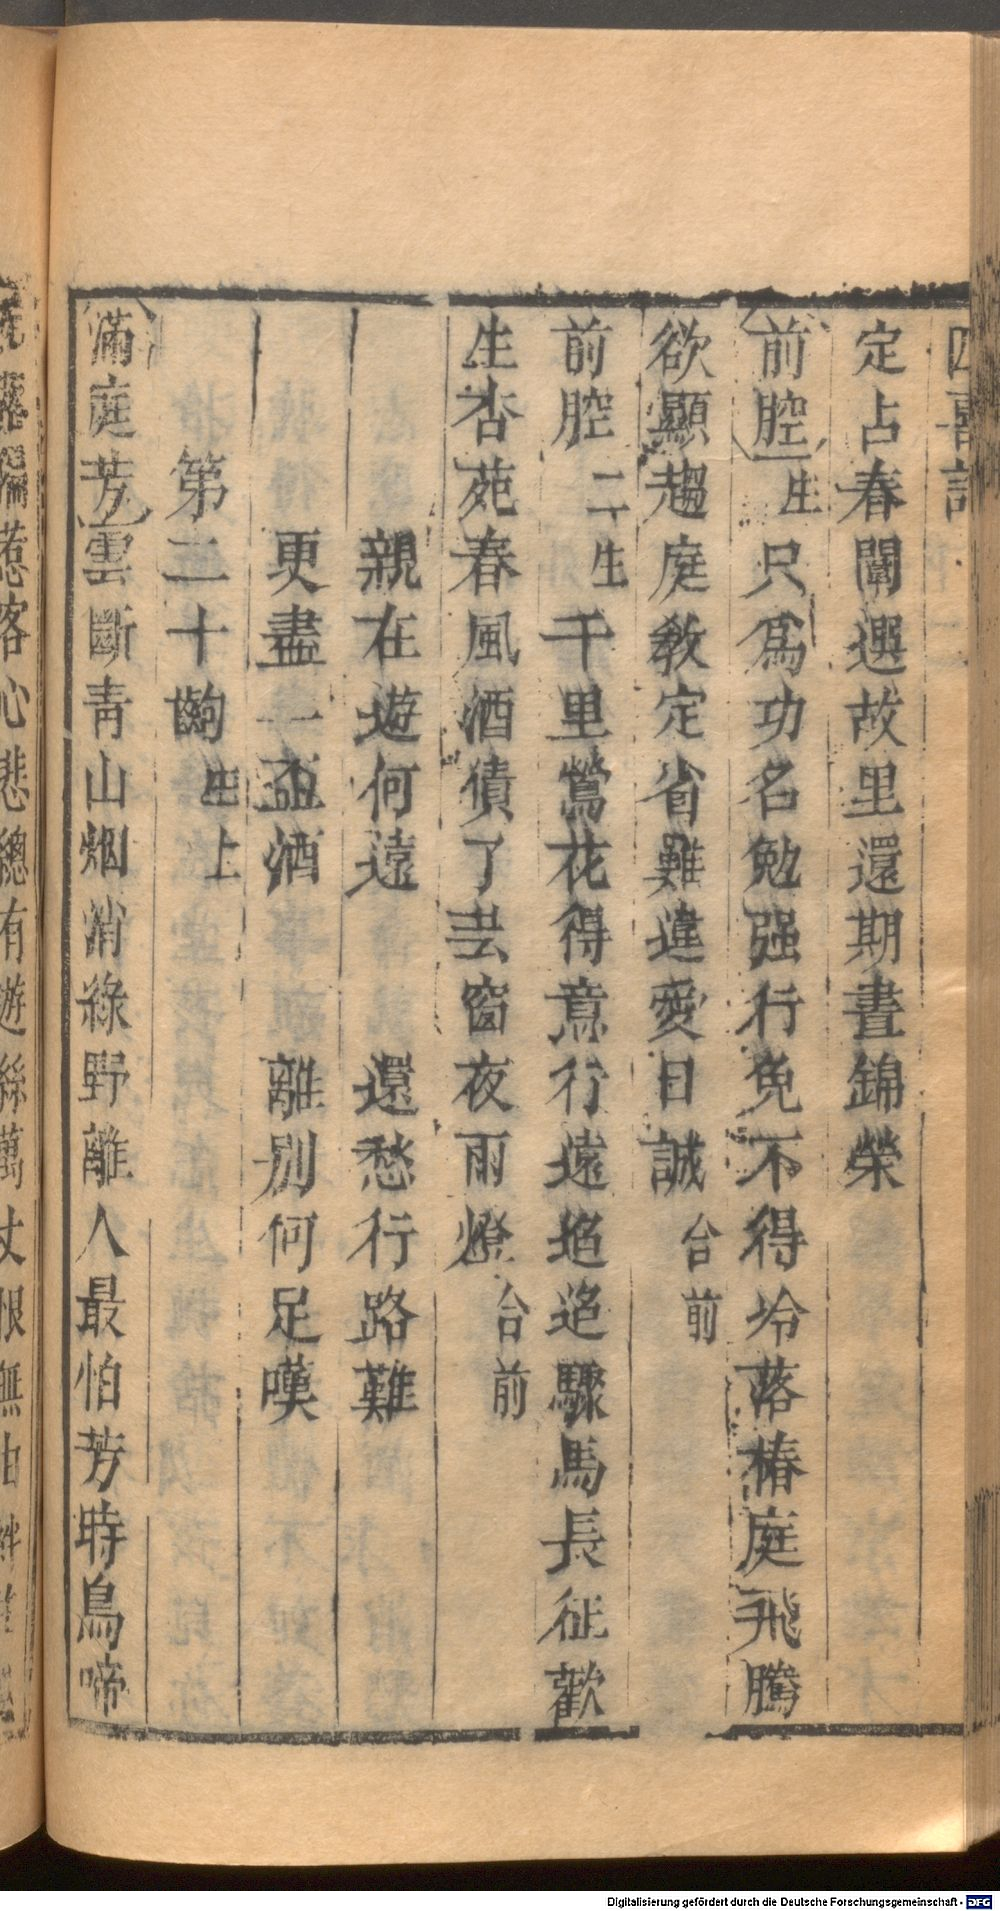 四喜記
定占春闈選故里還期晝錦榮
前腔生只爲功名勉强行免不得冷落椿庭飛騰
欲顯趨庭教定省難違愛日誠台前
前腔二生千里鶯花得意行遠追追驟馬長征歡
生杏苑春風酒債了芸窗夜雨燈台前
親在遊何遠 還愁行路難
更盡一盃酒 離別何足嘆
第二十齣生上
滿庭芳雲斷青山烟消綠野離人最怕芳時鳥啼
惹客心悲總有遊絲萬丈恨無由
Digitalisierung gefördert durch die Deutsche Forschungsgemeinschaft - DFG